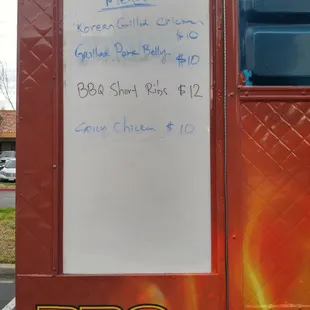 Menu
Korean Grilled Chicken
$10
Grilled Pork Belly
$10
BBQ Short Ribs $12
Spicy Chicken $10
BBQ